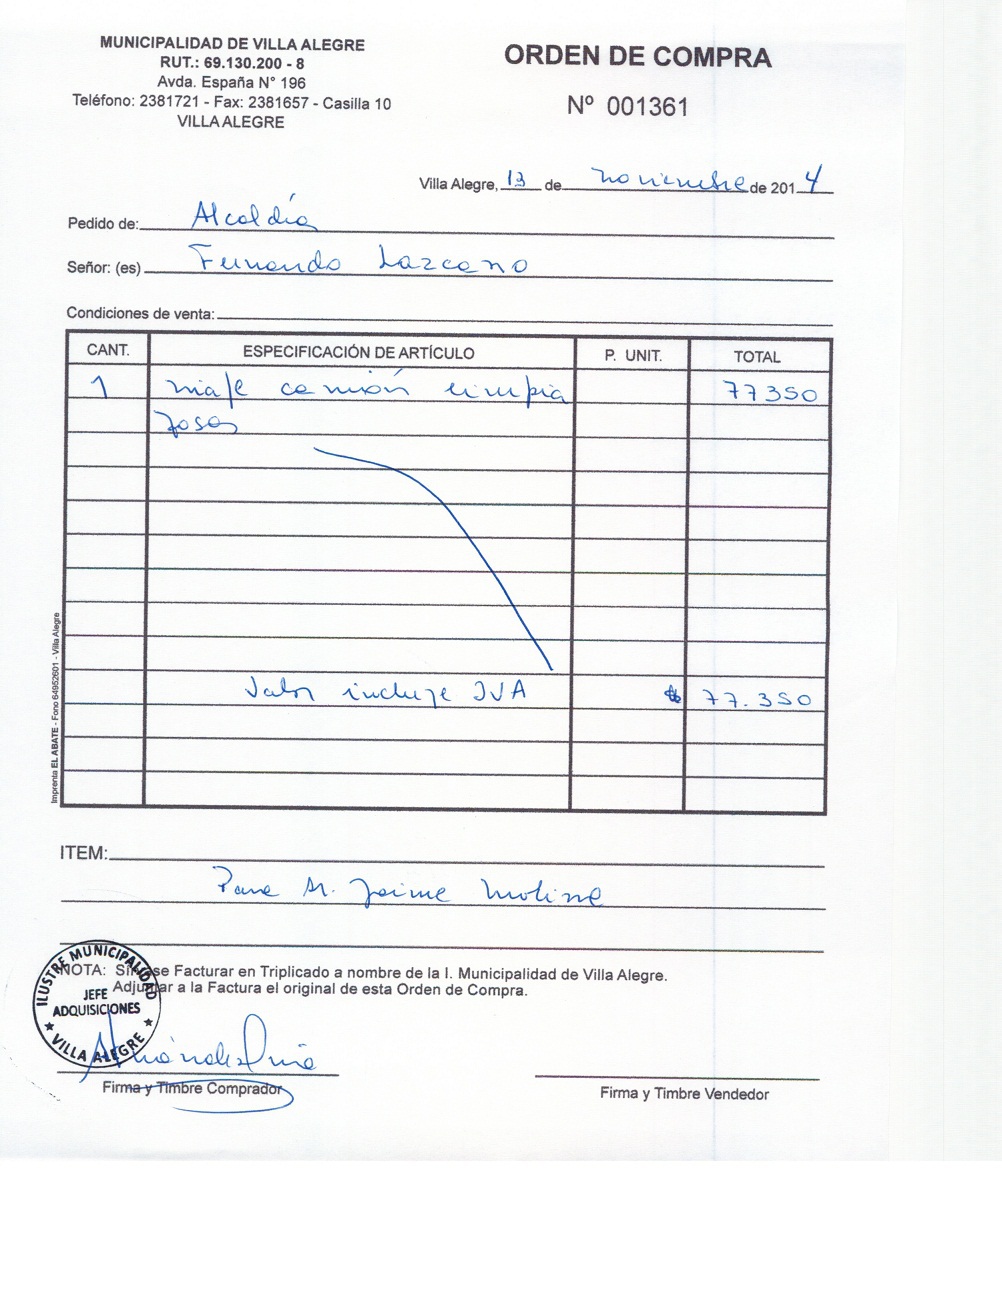 MUNICIPALIDAD DE VILLA ALEGRE
RUT.: 69.130.200 - 8
Avda. España N° 196
Teléfono: 2381721 - Fax: 2381657 - Casilla 10
VILLA ALEGRE
ORDEN DE COMPRA
Nº 001361
Villa Alegre, 13 de noviembre de 2014
Pedido de: Alcaldía
Señor: (es) Fernando Lazcano
Condiciones de venta:
CANT. ESPECIFICACIÓN DE ARTÍCULO P. UNIT. TOTAL
1 viaje camión limpia 77350
fosas
Valor incluye IVA $ 77.350
Imprenta EL ABATE - Fono 64952601 - Villa Alegre
ITEM:
Para Sr. Jaime Molina
NOTA: Sírvase Facturar en Triplicado a nombre de la I. Municipalidad de Villa Alegre.
Adjuntar a la Factura el original de esta Orden de Compra.
ILUSTRE MUNICIPALIDAD
JEFE
ADQUISICIONES
★ VILLA ALEGRE ★
Firma y Timbre Comprador
Firma y Timbre Vendedor